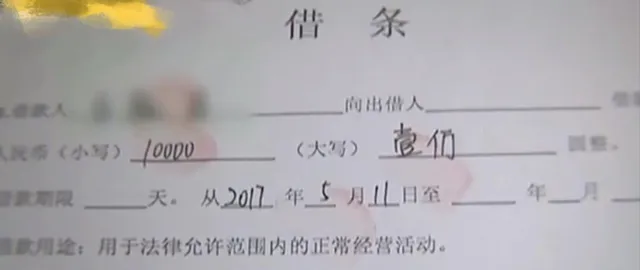 借 条
借款人 向出借人 借
人民币（小写）10000 （大写） 壹仟 圆整。
借款期限 天。从2017年5月11日至 年 月
借款用途：用于法律允许范围内的正常经营活动。